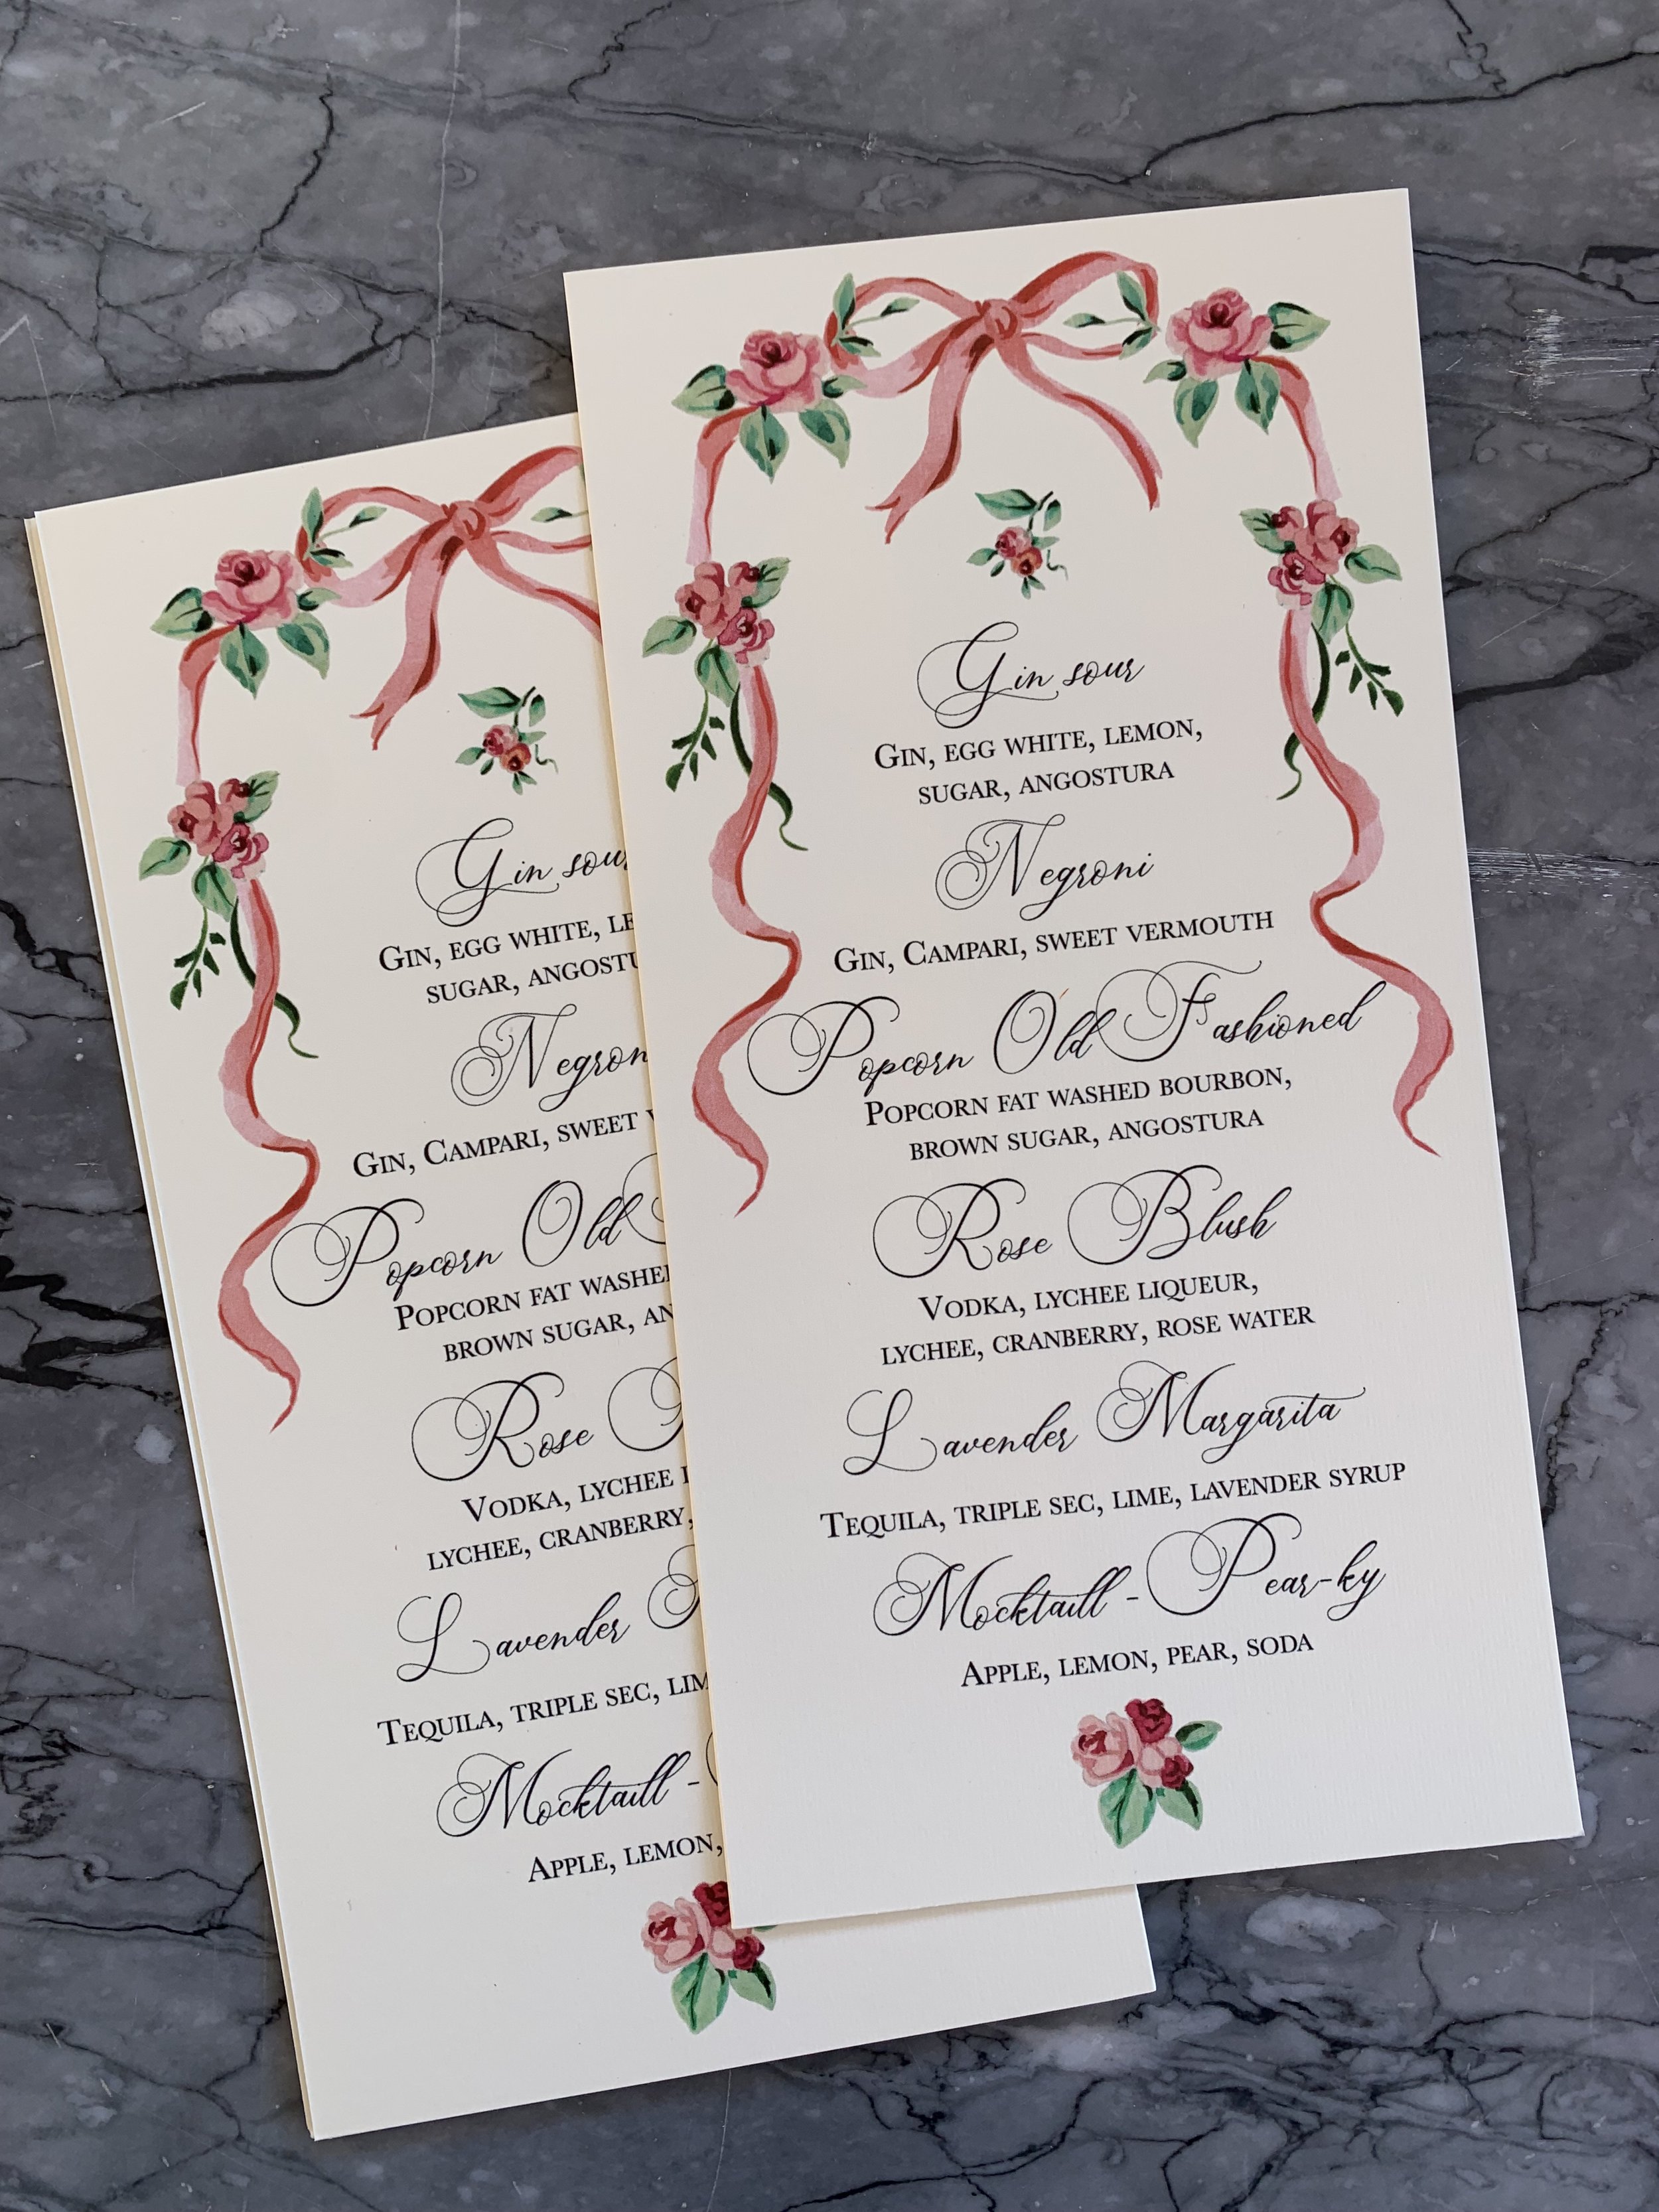 Gin sour
Gin, egg white, lemon,
sugar, angostura
Negroni
Gin, Campari, sweet vermouth
Popcorn Old Fashioned
Popcorn fat washed bourbon,
brown sugar, angostura
Rose Blush
Vodka, lychee liqueur,
lychee, cranberry, rose water
Lavender Margarita
Tequila, triple sec, lime, lavender syrup
Mocktaill - Pear-ky
Apple, lemon, pear, soda
Gin sour
Gin, egg white, le
sugar, angostu
Negroni
Gin, Campari, sweet v
Popcorn Old
Popcorn fat washed
brown sugar, an
Rose
Vodka, lychee l
lychee, cranberry,
Lavender
Tequila, triple sec, lim
Mocktaill -
Apple, lemon,